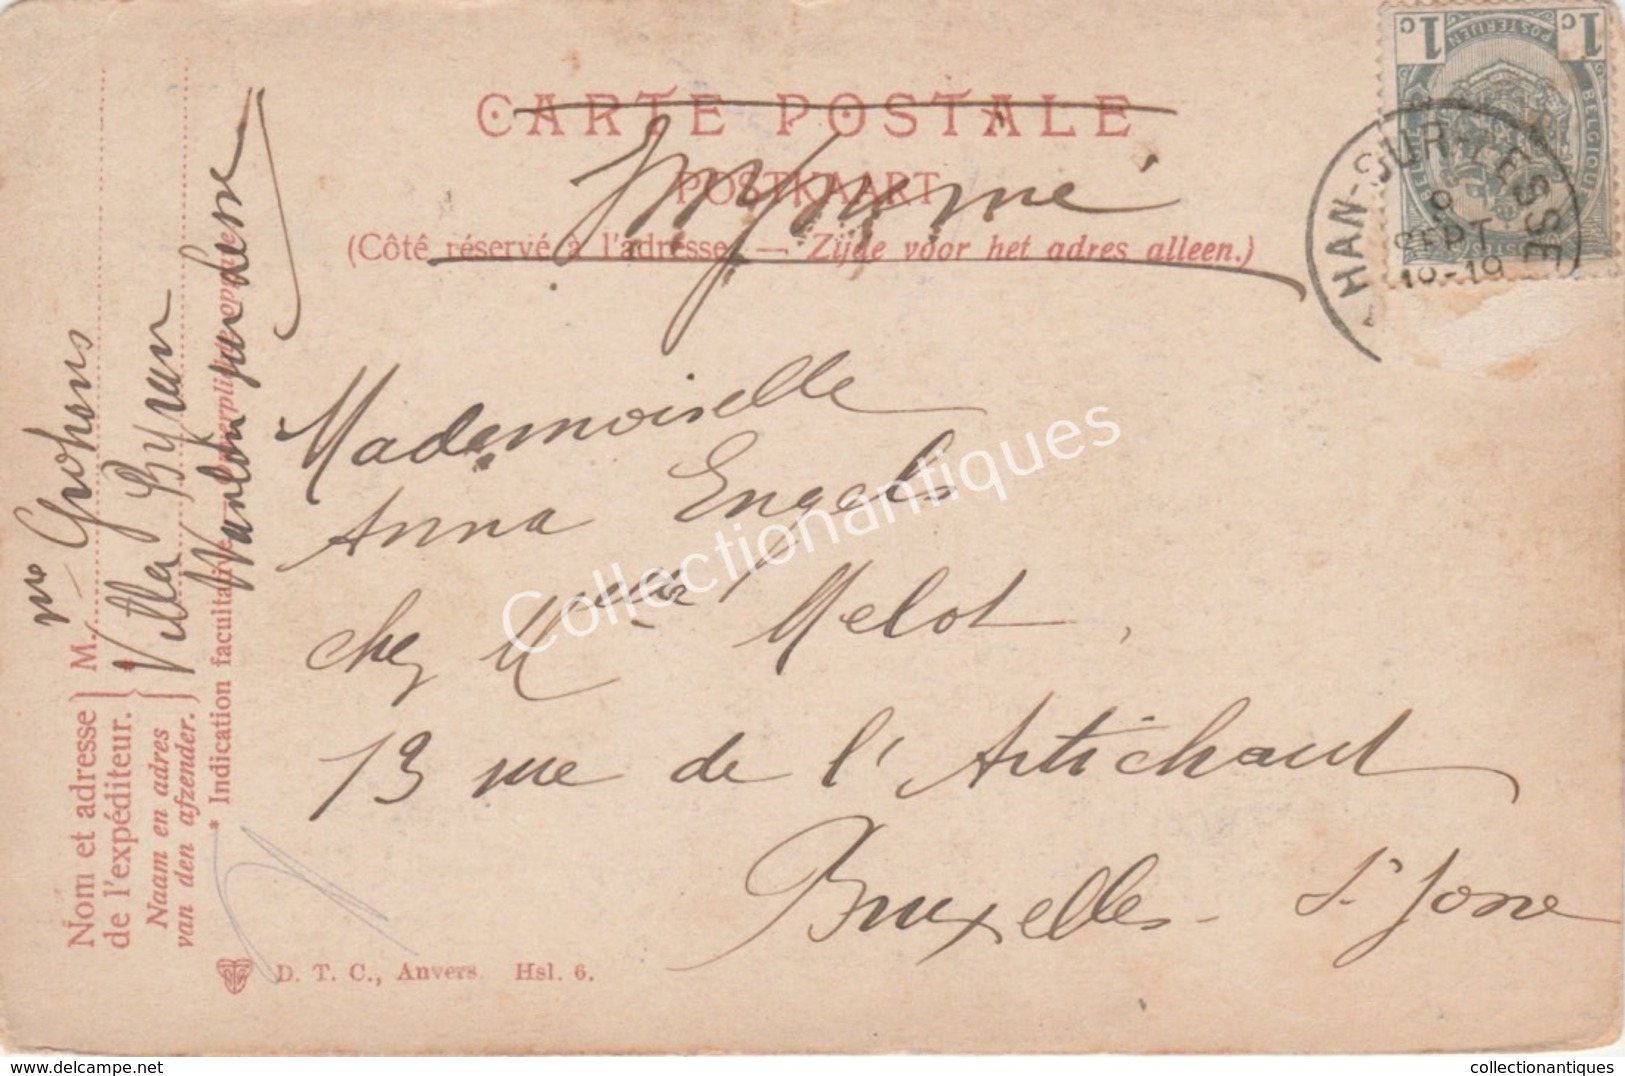 CARTE POSTALE
POSTKAART
Imprimé
(Côté réservé à l'adresse. — Zijde voor het adres alleen.)
1c 1c
POSTERIJEN
HAN-SUR-LESSE
9
SEPT
18-19
Mademoiselle
Anna Engels
chez Melot
13 rue de l'Artichaut
Bruxelles - St Josse
Nom et adresse
de l'expéditeur.
Naam en adres
van den afzender.
M.
Villa
* Indication facultative
D. T. C., Anvers. Hsl. 6.
Collectionantiques
www.delcampe.net
collectionantiques